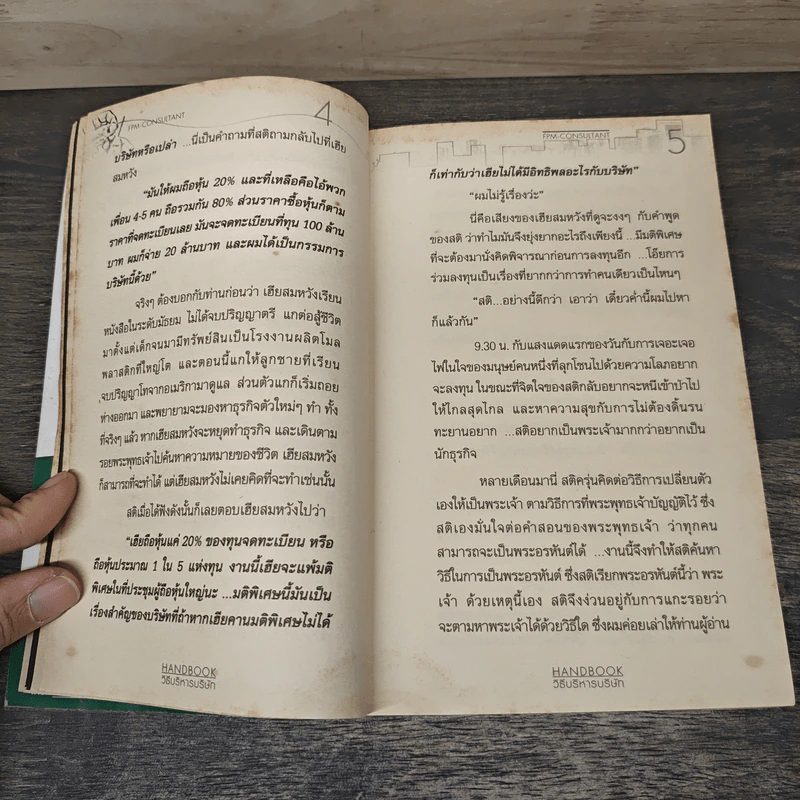 FPM-CONSULTANT
4
บริษัทหรือเปล่า ...นี่เป็นคำถามที่สติถามกลับไปที่เฮีย
สมหวัง
"มันให้ผมถือหุ้น 20% และที่เหลือคือไอ้พวก
เพื่อน 4-5 คน ถือรวมกัน 80% ส่วนราคาซื้อหุ้นก็ตาม
ราคาที่จดทะเบียนเลย มันจะจดทะเบียนที่ทุน 100 ล้าน
บาท ผมก็จ่าย 20 ล้านบาท และผมได้เป็นกรรมการ
บริษัทนี้ด้วย"
จริงๆ ต้องบอกกับท่านก่อนว่า เฮียสมหวังเรียน
หนังสือในระดับมัธยม ไม่ได้จบปริญญาตรี แกต่อสู้ชีวิต
มาตั้งแต่เด็กจนมามีทรัพย์สินเป็นโรงงานผลิตโมล
พลาสติกที่ใหญ่โต และตอนนี้แกให้ลูกชายที่เรียน
จบปริญญาโทจากอเมริกามาดูแล ส่วนตัวแกก็เริ่มถอย
ห่างออกมา และพยายามจะมองหาธุรกิจตัวใหม่ๆ ทำ ทั้ง
ที่จริงๆ แล้ว หากเฮียสมหวังจะหยุดทำธุรกิจ และเดินตาม
รอยพระพุทธเจ้าไปค้นหาความหมายของชีวิต เฮียสมหวัง
ก็สามารถที่จะทำได้ แต่เฮียสมหวังไม่เคยคิดที่จะทำเช่นนั้น
สติเมื่อได้ฟังดังนั้นก็เลยตอบเฮียสมหวังไปว่า
"เฮียถือหุ้นแค่ 20% ของทุนจดทะเบียน หรือ
ถือหุ้นประมาณ 1 ใน 5 แห่งทุน งานนี้เฮียจะแพ้มติ
พิเศษในที่ประชุมผู้ถือหุ้นใหญ่นะ ...มติพิเศษนี้มันเป็น
เรื่องสำคัญของบริษัทที่ถ้าหากเฮียคานมติพิเศษไม่ได้
HANDBOOK
วิธีบริหารบริษัท
FPM-CONSULTANT
5
ก็เท่ากับว่าเฮียไม่ได้มีอิทธิพลอะไรกับบริษัท"
"ผมไม่รู้เรื่องว่ะ"
นี่คือเสียงของเฮียสมหวังที่ดูจะงงๆ กับคำพูด
ของสติ ว่าทำไมมันจึงยุ่งยากอะไรถึงเพียงนี้ ...มีมติพิเศษ
ที่จะต้องมานั่งคิดพิจารณาก่อนการลงทุนอีก ...โอ๊ยการ
ร่วมลงทุนเป็นเรื่องที่ยากกว่าการทำคนเดียวเป็นไหนๆ
"สติ...อย่างนี้ดีกว่า เอาว่า เดี๋ยวค่ำนี้ผมไปหา
ก็แล้วกัน"
9.30 น. กับแสงแดดแรกของวันกับการเจอะเจอ
ไฟในใจของมนุษย์คนหนึ่งที่ลุกโชนไปด้วยความโลภอยาก
จะลงทุน ในขณะที่จิตใจของสติกลับอยากจะหนีเข้าป่าไป
ให้ไกลสุดไกล และหาความสุขกับการไม่ต้องดิ้นรน
ทะยานอยาก ...สติอยากเป็นพระเจ้ามากกว่าอยากเป็น
นักธุรกิจ
หลายเดือนมานี่ สติครุ่นคิดต่อวิธีการเปลี่ยนตัว
เองให้เป็นพระเจ้า ตามวิธีการที่พระพุทธเจ้าบัญญัติไว้ ซึ่ง
สติเองมั่นใจต่อคำสอนของพระพุทธเจ้า ว่าทุกคน
สามารถจะเป็นพระอรหันต์ได้ ...งานนี้จึงทำให้สติค้นหา
วิธีในการเป็นพระอรหันต์ ซึ่งสติเรียกพระอรหันต์นี้ว่า พระ
เจ้า ด้วยเหตุนี้เอง สติจึงง่วนอยู่กับการแกะรอยว่า
จะตามหาพระเจ้าได้ด้วยวิธีใด ซึ่งผมค่อยเล่าให้ท่านผู้อ่าน
HANDBOOK
วิธีบริหารบริษัท